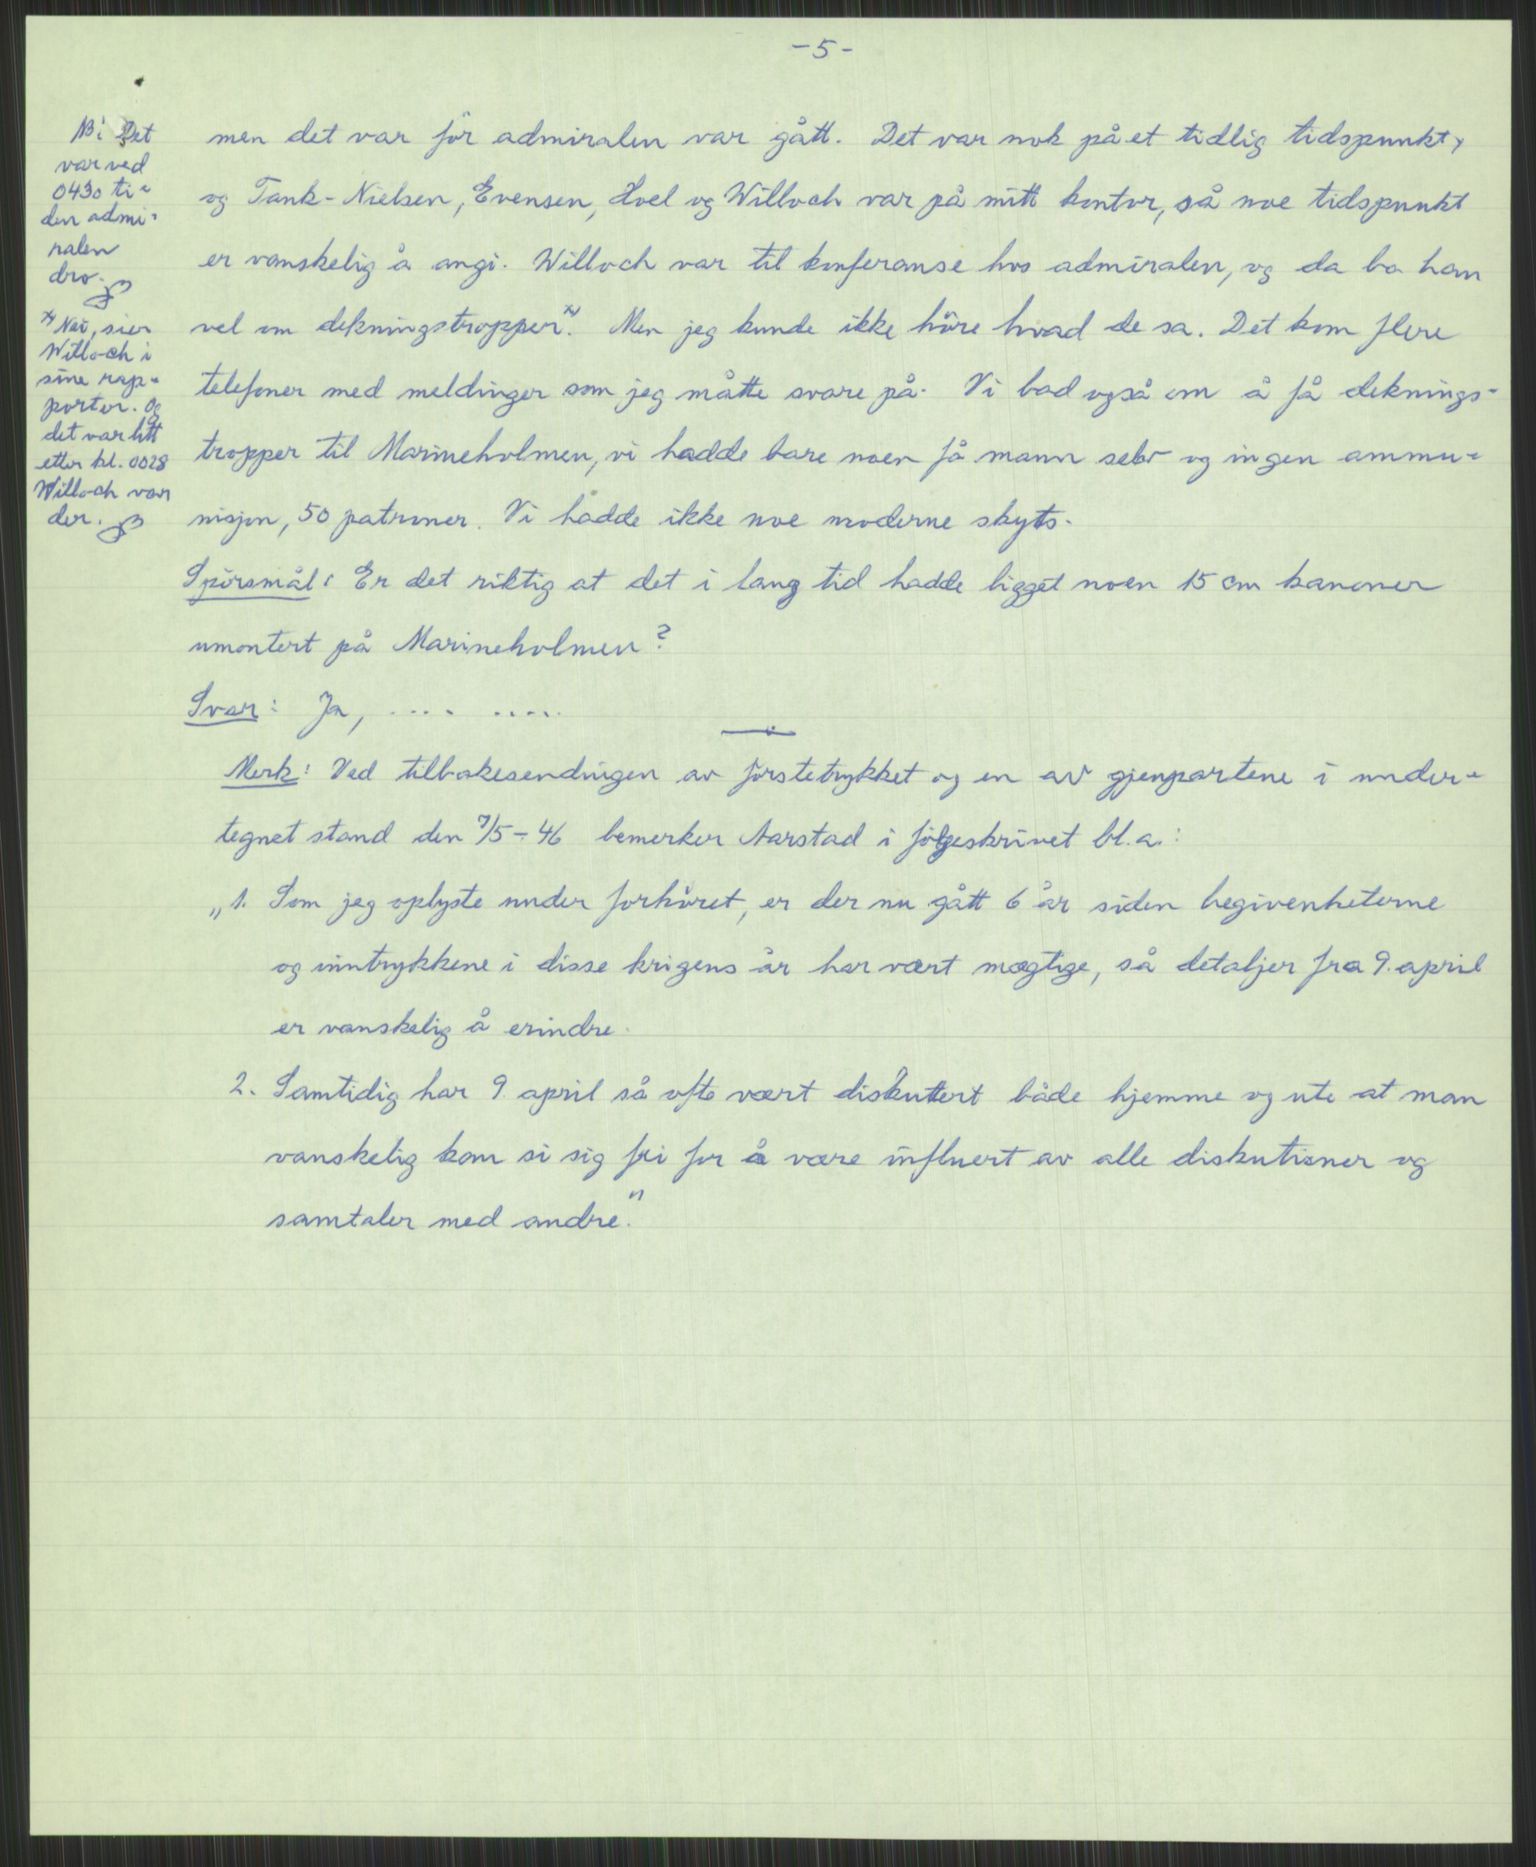 -5-
NB! Det
var ved
0430 ti-
den admi-
ralen
dro.
x) Nei, sier
Willoch i
sine rap-
porter. Og
det var litt
etter kl. 0028
Willoch var
der.
men det var før admiralen var gått. Det var nok på et tidlig tidspunkt,
og Tank-Nielsen, Evensen, Hoel og Willoch var på mitt kontor, så noe tidspunkt
er vanskelig å angi. Willoch var til konferanse hos admiralen, og da ba han
vel om dekningstropper x). Men jeg kunde ikke høre hvad de sa. Det kom flere
telefoner med meldinger som jeg måtte svare på. Vi bad også om å få deknings-
tropper til Marineholmen, vi hadde bare noen få mann selv og ingen ammu-
nisjon, 50 patroner. Vi hadde ikke noe moderne skyts.
Spørsmål: Er det riktig at det i lang tid hadde ligget noen 15 cm kanoner
umontert på Marineholmen?
Svar: Ja, .... .....
Merk: Ved tilbakesendingen av førstetrykket og en av gjenpartene i under-
tegnet stand den 7/5-46 bemerker Aarstad i følgeskrivet bl.a.:
„1. Som jeg oplyste under forhøret, er der nu gått 6 år siden begivenheterne
og inntrykkene i disse krigens år har vært mægtige, så detaljer fra 9. april
er vanskelig å erindre.
2. Samtidig har 9. april så ofte vært diskuttert både hjemme og ute at man
vanskelig kan si sig fri for å være influert av alle diskutioner og
samtaler med andre."